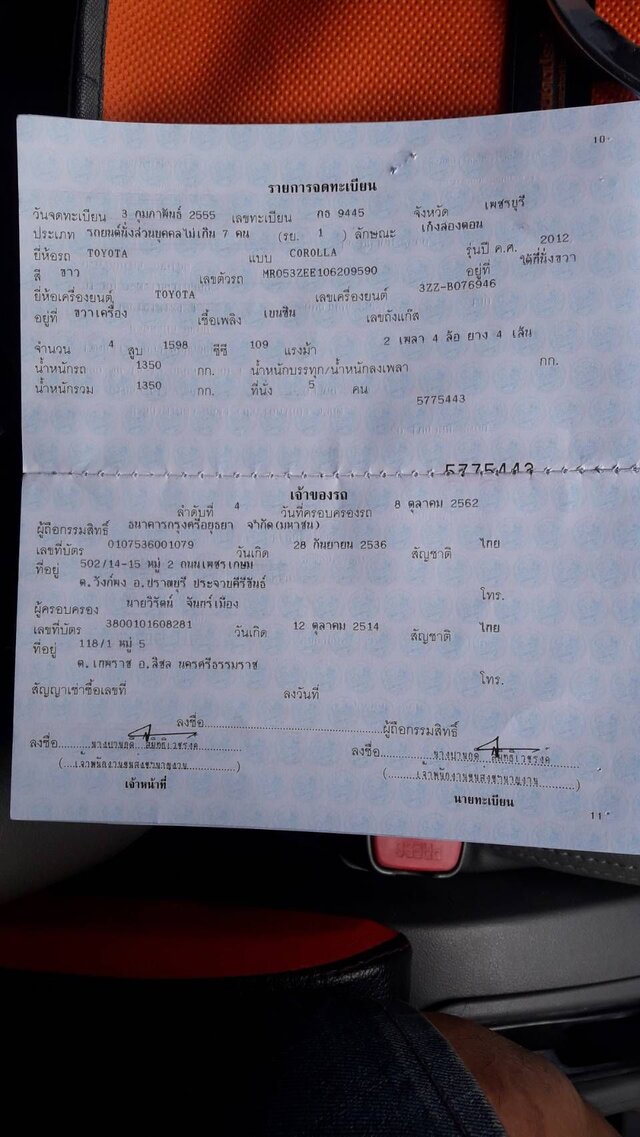 10
รายการจดทะเบียน
วันจดทะเบียน 3 กุมภาพันธ์ 2555 เลขทะเบียน กธ 9445 จังหวัด เพชรบุรี
ประเภท รถยนต์นั่งส่วนบุคคลไม่เกิน 7 คน (รย. 1 ) ลักษณะ เก๋งสองตอน
ยี่ห้อรถ TOYOTA แบบ COROLLA รุ่นปี ค.ศ. 2012
สี ขาว เลขตัวรถ MR053ZEE106209590 อยู่ที่ ใต้ที่นั่งขวา
ยี่ห้อเครื่องยนต์ TOYOTA เลขเครื่องยนต์ 3ZZ-B076946
อยู่ที่ ขวาเครื่อง เชื้อเพลิง เบนซิน เลขถังแก๊ส
จำนวน 4 สูบ 1598 ซีซี 109 แรงม้า 2 เพลา 4 ล้อ ยาง 4 เส้น
น้ำหนักรถ 1350 กก. น้ำหนักบรรทุก/น้ำหนักลงเพลา กก.
น้ำหนักรวม 1350 กก. ที่นั่ง 5 คน
5775443
5775443
เจ้าของรถ
ลำดับที่ 4 วันที่ครอบครองรถ 8 ตุลาคม 2562
ผู้ถือกรรมสิทธิ์ ธนาคารกรุงศรีอยุธยา จำกัด(มหาชน)
เลขที่บัตร 0107536001079 วันเกิด 28 กันยายน 2536 สัญชาติ ไทย
ที่อยู่ 502/14-15 หมู่ 2 ถนนเพชรเกษม
ต.วังก์พง อ.ปราณบุรี ประจวบคีรีขันธ์ โทร.
ผู้ครอบครอง นายวิรัตน์ จันทร์เมือง
เลขที่บัตร 3800101608281 วันเกิด 12 ตุลาคม 2514 สัญชาติ ไทย
ที่อยู่ 118/1 หมู่ 5
ต.เทพราช อ.สิชล นครศรีธรรมราช โทร.
สัญญาเช่าซื้อเลขที่ ลงวันที่
ลงชื่อ ผู้ถือกรรมสิทธิ์
ลงชื่อ ลงชื่อ
(เจ้าพนักงานขนส่งชำนาญงาน) (เจ้าพนักงานขนส่งชำนาญงาน)
เจ้าหน้าที่ นายทะเบียน
11
PRESS